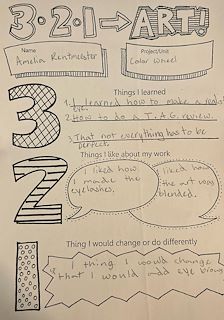 3·2·1→ART!
Name
Project/Unit
Amelia Rentmeester
Color Wheel
Things I learned
3
1. I learned how to make a reals-
eye.
2. How to do a T.A.G. review.
3. That not everything has to be
perfect.
Things I like about my work
2
I liked how
I made the
eyelashes.
I liked how
the art was
blended.
Thing I would change or do differently
1
1 thing I would change
that I would add eye brows